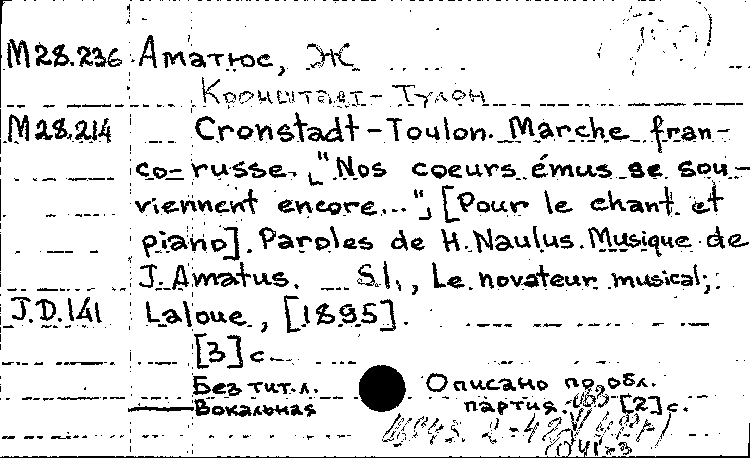 M28.236 Аматюс, Ж
Кронштадт-Тулон
M28.214 Cronstadt-Toulon. Marche fran-
co-russe. „Nos coeurs émus se sou-
viennent encore...", [Pour le chant et
piano]. Paroles de H. Naulus. Musique de
J. Amatus. S.l., Le novateur musical;
J.D.141 Laloue, [1895].
[3] с
Без тит.л. Описано по обл.
Вокальная партия. [2] с.